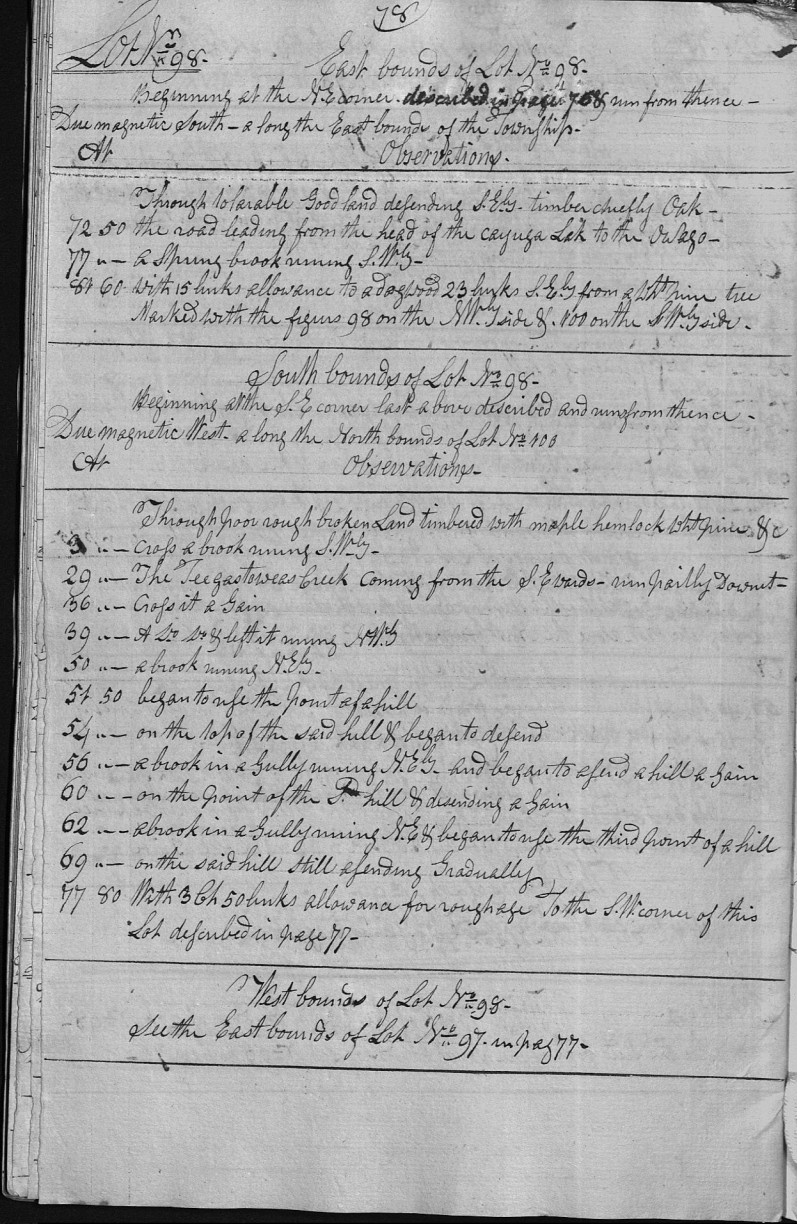 78
Lot Nr 98-
East bounds of Lot No 98-
Beginning at the N.E corner described in page 75 & run from thence -
Due magnetic South - a long the East bounds of the Township-
At Observations-
Through tolarable Good land desending S.Ely- timber chiefly Oak-
72 50 the road leading from the head of the cayuga Lak to the Owago-
77 "- a Spring brook runing S.Wly-
81 60 with 15 links allowance to a dogwood 23 links S.Ely from a Wht pine tree
Marked with the figurs 98 on the N.Wly side & 100 on the S.Wly side-
South bounds of Lot No 98-
Beginning at the S.E corner last a bove described and runs from thence-
Due magnetic West- a long the North bounds of Lot No 100
At Observations-
Through poor rough broken Land timbered with maple hemlock Wht pine &c
3 "- Cross a brook runing S.Wly-
29 "- The Teegastoweas Creek coming from the S.E wards- run partly Down it-
36 "- Cross it a Gain
39 "- A Do Do & left it runing N.Wly
50 "- a brook runing N.Ely-
51 50 began to rise the point of a hill
54 "- on the top of the said hill & began to desend
56 "- a brook in a Gully runing N.Ely- and began to asend a hill a Gain
60 "- on the point of the Sd hill & desending a Gain
62 "- a brook in a Gully runing N.E & began to rise the third point of a hill
69 "- on the said hill still asending Gradually
77 80 With 3 Ch 50 links allowance for roughage To the S.W. corner of this
Lot described in page 77-
West bounds of Lot No 98-
See the East bounds of Lot No 97- in pag 77-